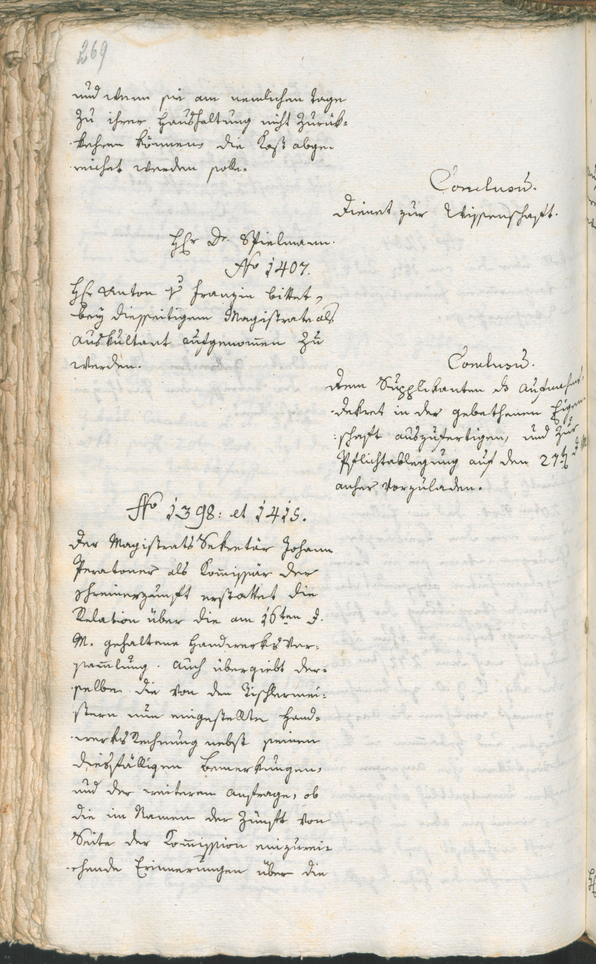 269
und wenn sie am nemlichen Tage
zu ihrer Haushaltung nicht zurük-
kehren können, die Kost abge-
reichet werden solle.
Conclusū.
Dienet zur Wissenschaft.
Hr Dr. Spielmann.
No 1407.
Hr Anton v Franzin bittet,
bey diesseitigem Magistrate als
Auskultant aufgenom̄en zu
werden.
Conclusū.
Dem Supplikanten das Aufnahms-
dekret in der gebethenen Eigen-
schaft auszufertigen, und zur
Pflichtablegung auf den 27t d. M.
anher vorzuladen.
No 1398: et 1415.
Der Magistrats Sekretär Johann
Peratoner als Kom̄issär der
Schreinerzunft erstattet die
Relation über die am 16ten d.
M. gehaltene Handwerksver-
sam̄lung. Auch übergiebt der-
selbe die von den Tischlermei-
stern nun eingestellte Hand-
werksRechnung nebst seinen
diesfälligen Bemerkungen,
und der weiteren Anfrage, ob
die im Namen der Zunft von
Seite der Kom̄ission einzurei-
chende Erinnerungen über die